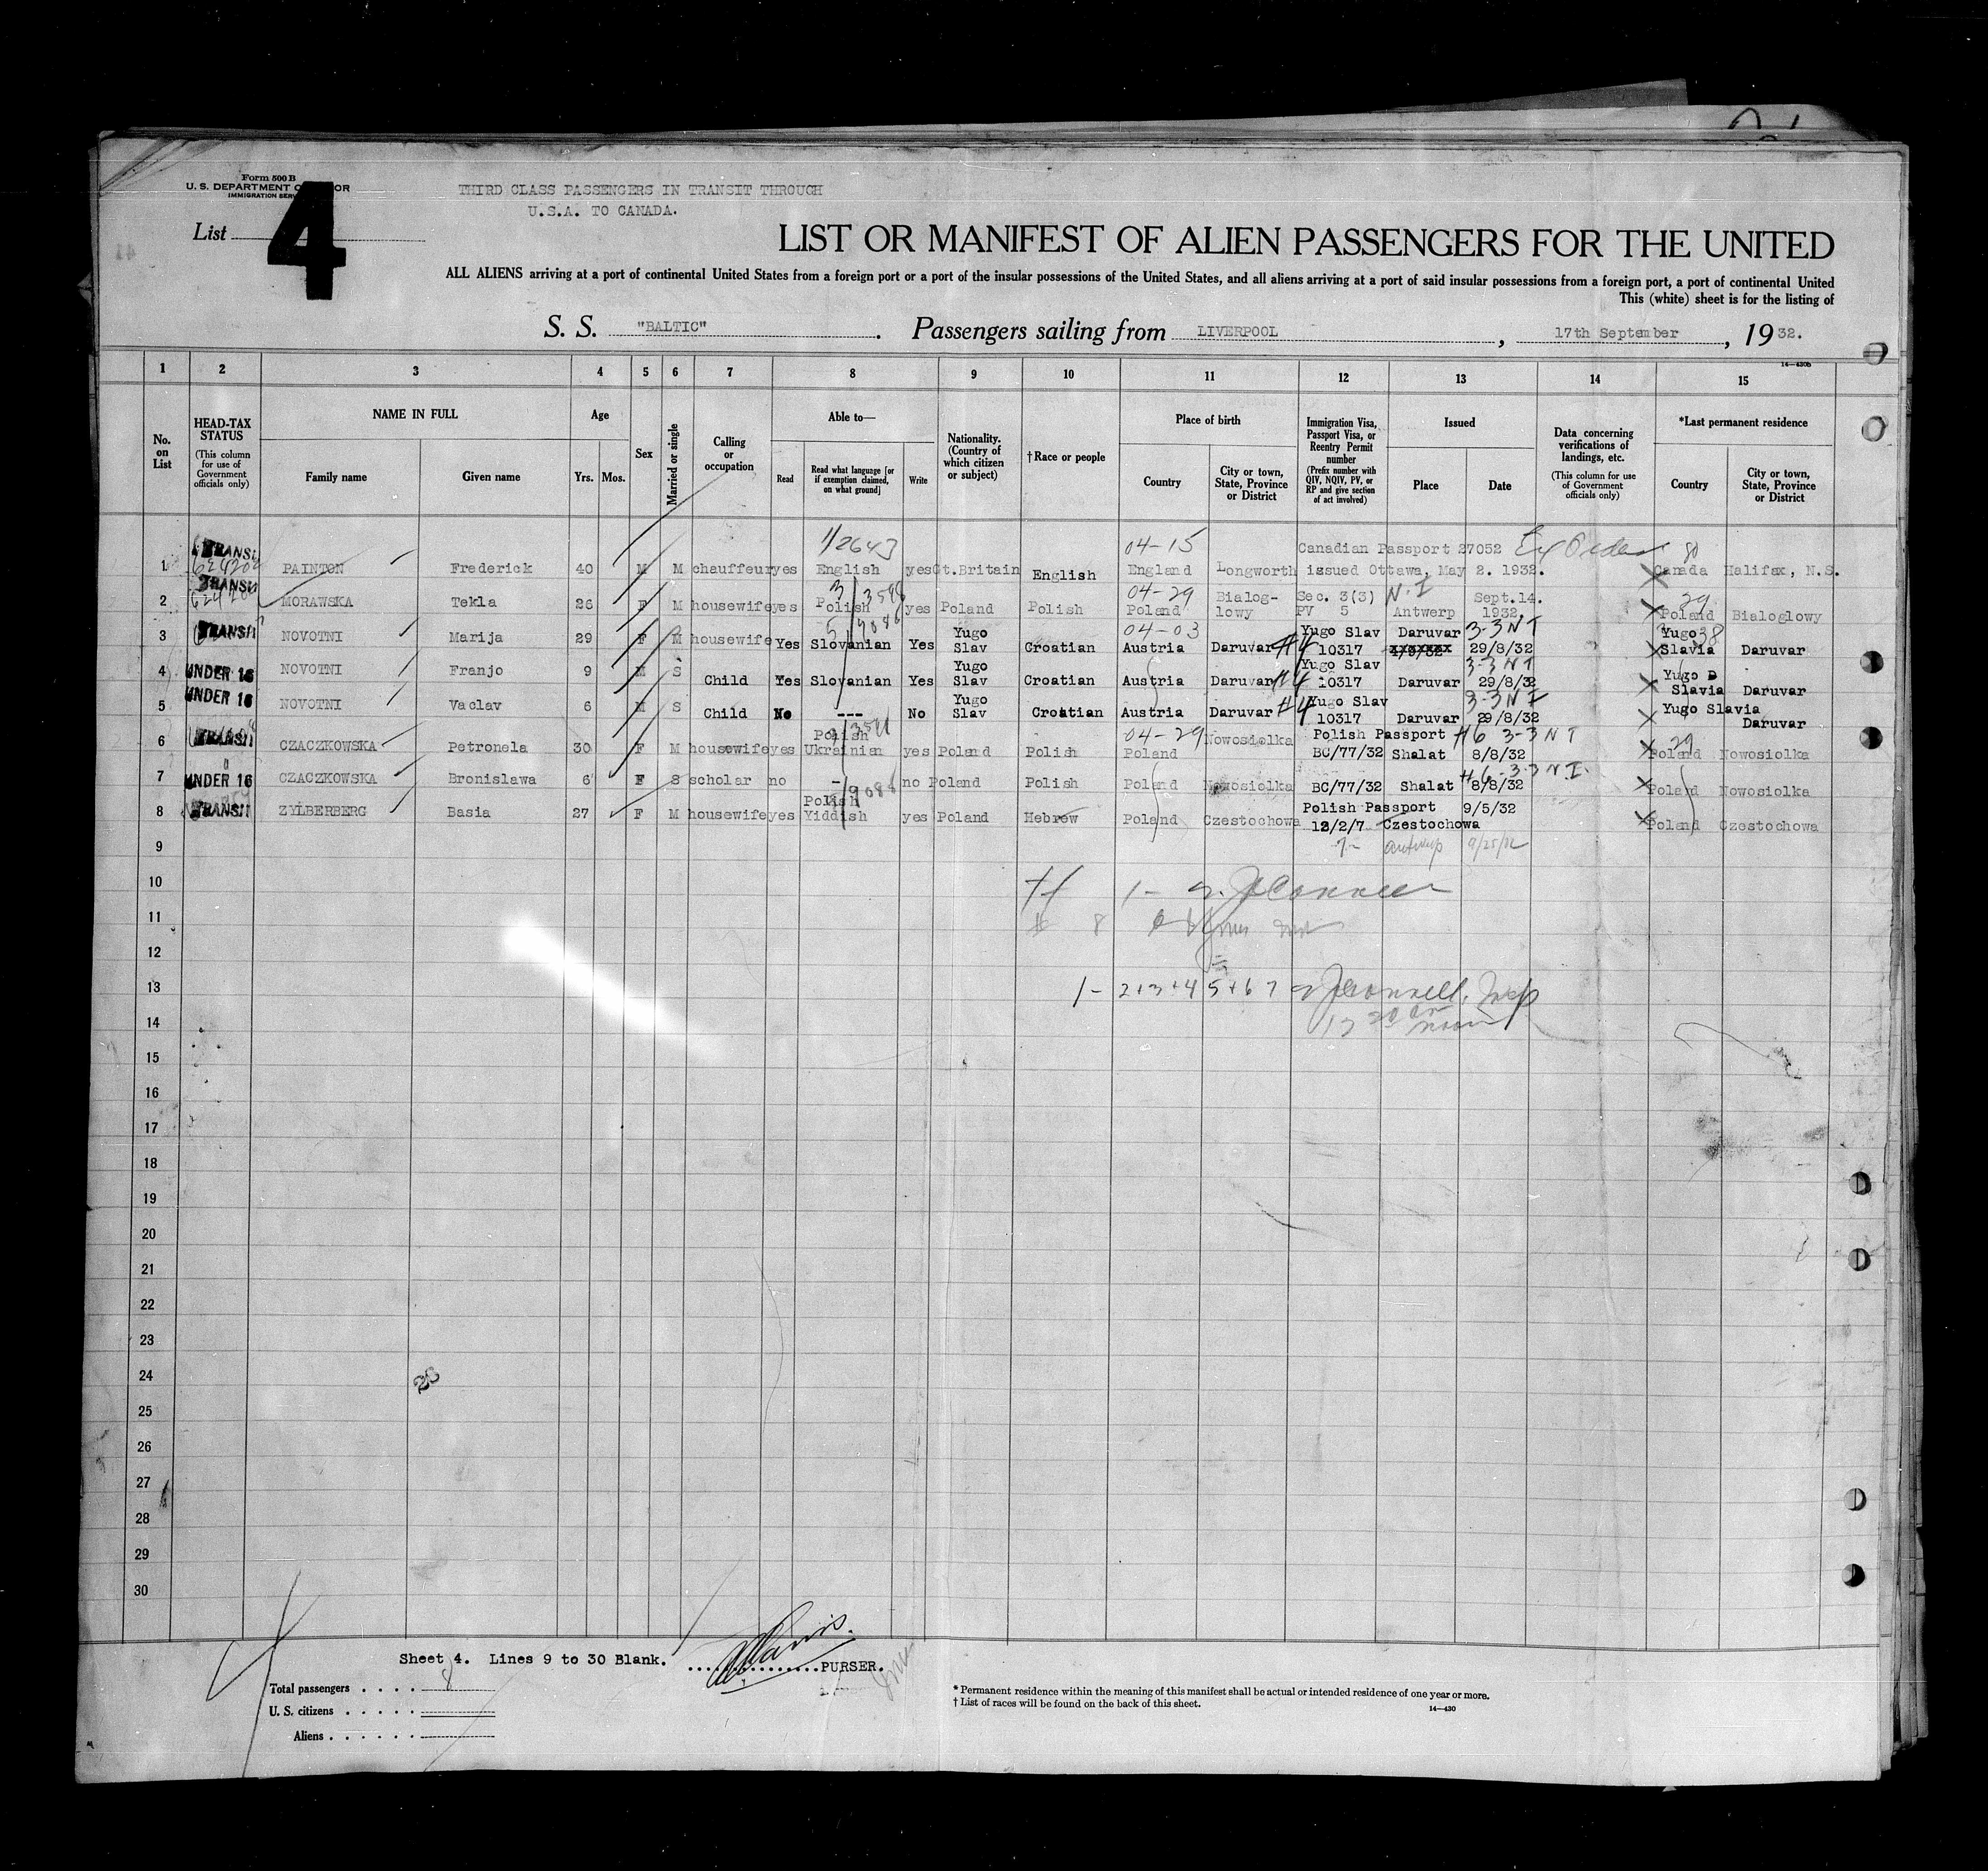 Form 500 B
U. S. DEPARTMENT OF LABOR
IMMIGRATION SERVICE
THIRD CLASS PASSENGERS IN TRANSIT THROUGH
U.S.A. TO CANADA.
List 4
LIST OR MANIFEST OF ALIEN PASSENGERS FOR THE UNITED
ALL ALIENS arriving at a port of continental United States from a foreign port or a port of the insular possessions of the United States, and all aliens arriving at a port of said insular possessions from a foreign port, a port of continental United
This (white) sheet is for the listing of
S. S. "BALTIC". Passengers sailing from LIVERPOOL, 17th September, 1932.
14—430B
1 2 3 4 5 6 7 8 9 10 11 12 13 14 15
No. on List
HEAD-TAX STATUS
(This column for use of Government officials only)
NAME IN FULL
Family name
Given name
Age
Yrs. Mos.
Sex
Married or single
Calling or occupation
Able to—
Read
Read what language [or if exemption claimed, on what ground]
Write
Nationality. (Country of which citizen or subject)
†Race or people
Place of birth
Country
City or town, State, Province or District
Immigration Visa, Passport Visa, or Reentry Permit number
(Prefix number with QIV, NQIV, PV, or RP and give section of act involved)
Issued
Place
Date
Data concerning verifications of landings, etc.
(This column for use of Government officials only)
*Last permanent residence
Country
City or town, State, Province or District
1/2643 04-15 Canadian Passport 27052
1 TRANSIT PAINTON Frederick 40 M M chauffeur yes English yes Gt.Britain English England Longworth issued Ottawa, May 2. 1932. Canada Halifax, N.S.
04-29 Bialog- Sec. 3(3) N.I Sept.14. 29
2 TRANSIT MORAWSKA Tekla 26 F M housewife yes Polish yes Poland Polish Poland lowy PV 5 Antwerp 1932 Poland Bialoglowy
Yugo 04-03 Yugo Slav Daruvar 3-3 NI Yugo 38
3 TRANSIT NOVOTNI Marija 29 F M housewife Yes Slovanian Yes Slav Croatian Austria Daruvar #4 10317 29/8/32 Slavia Daruvar
Yugo Yugo Slav 3-3 NI Yugo
4 UNDER 16 NOVOTNI Franjo 9 M S Child Yes Slovanian Yes Slav Croatian Austria Daruvar #4 10317 Daruvar 29/8/32 Slavia Daruvar
Yugo Yugo Slav 3-3 NI Yugo Slavia
5 UNDER 16 NOVOTNI Vaclav 6 M S Child No --- No Slav Croatian Austria Daruvar #4 10317 Daruvar 29/8/32 Daruvar
Polish 04-29 Nowosiolka Polish Passport #6 3-3 NI 29
6 TRANSIT CZACZKOWSKA Petronela 30 F M housewife yes Ukrainian yes Poland Polish Poland BC/77/32 Shalat 8/8/32 Poland Nowosiolka
#6-3-3 N.I.
7 UNDER 16 CZACZKOWSKA Bronislawa 6 F S scholar no - no Poland Polish Poland Nowosiolka BC/77/32 Shalat 8/8/32 Poland Nowosiolka
Polish Polish Passport 9/5/32
8 TRANSIT ZYLBERBERG Basia 27 F M housewife yes Yiddish yes Poland Hebrew Poland Czestochowa 12/2/7 Czestochowa Poland Czestochowa
9
10
11
12
13 1- 2+3+4 5+6 7
14
15
16
17
18
19
20
21
22
23
24
25
26
27
28
29
30
Sheet 4. Lines 9 to 30 Blank.
PURSER.
Total passengers . . . . 8
U. S. citizens . . . . .
Aliens . . . . . .
* Permanent residence within the meaning of this manifest shall be actual or intended residence of one year or more.
† List of races will be found on the back of this sheet.
14—430